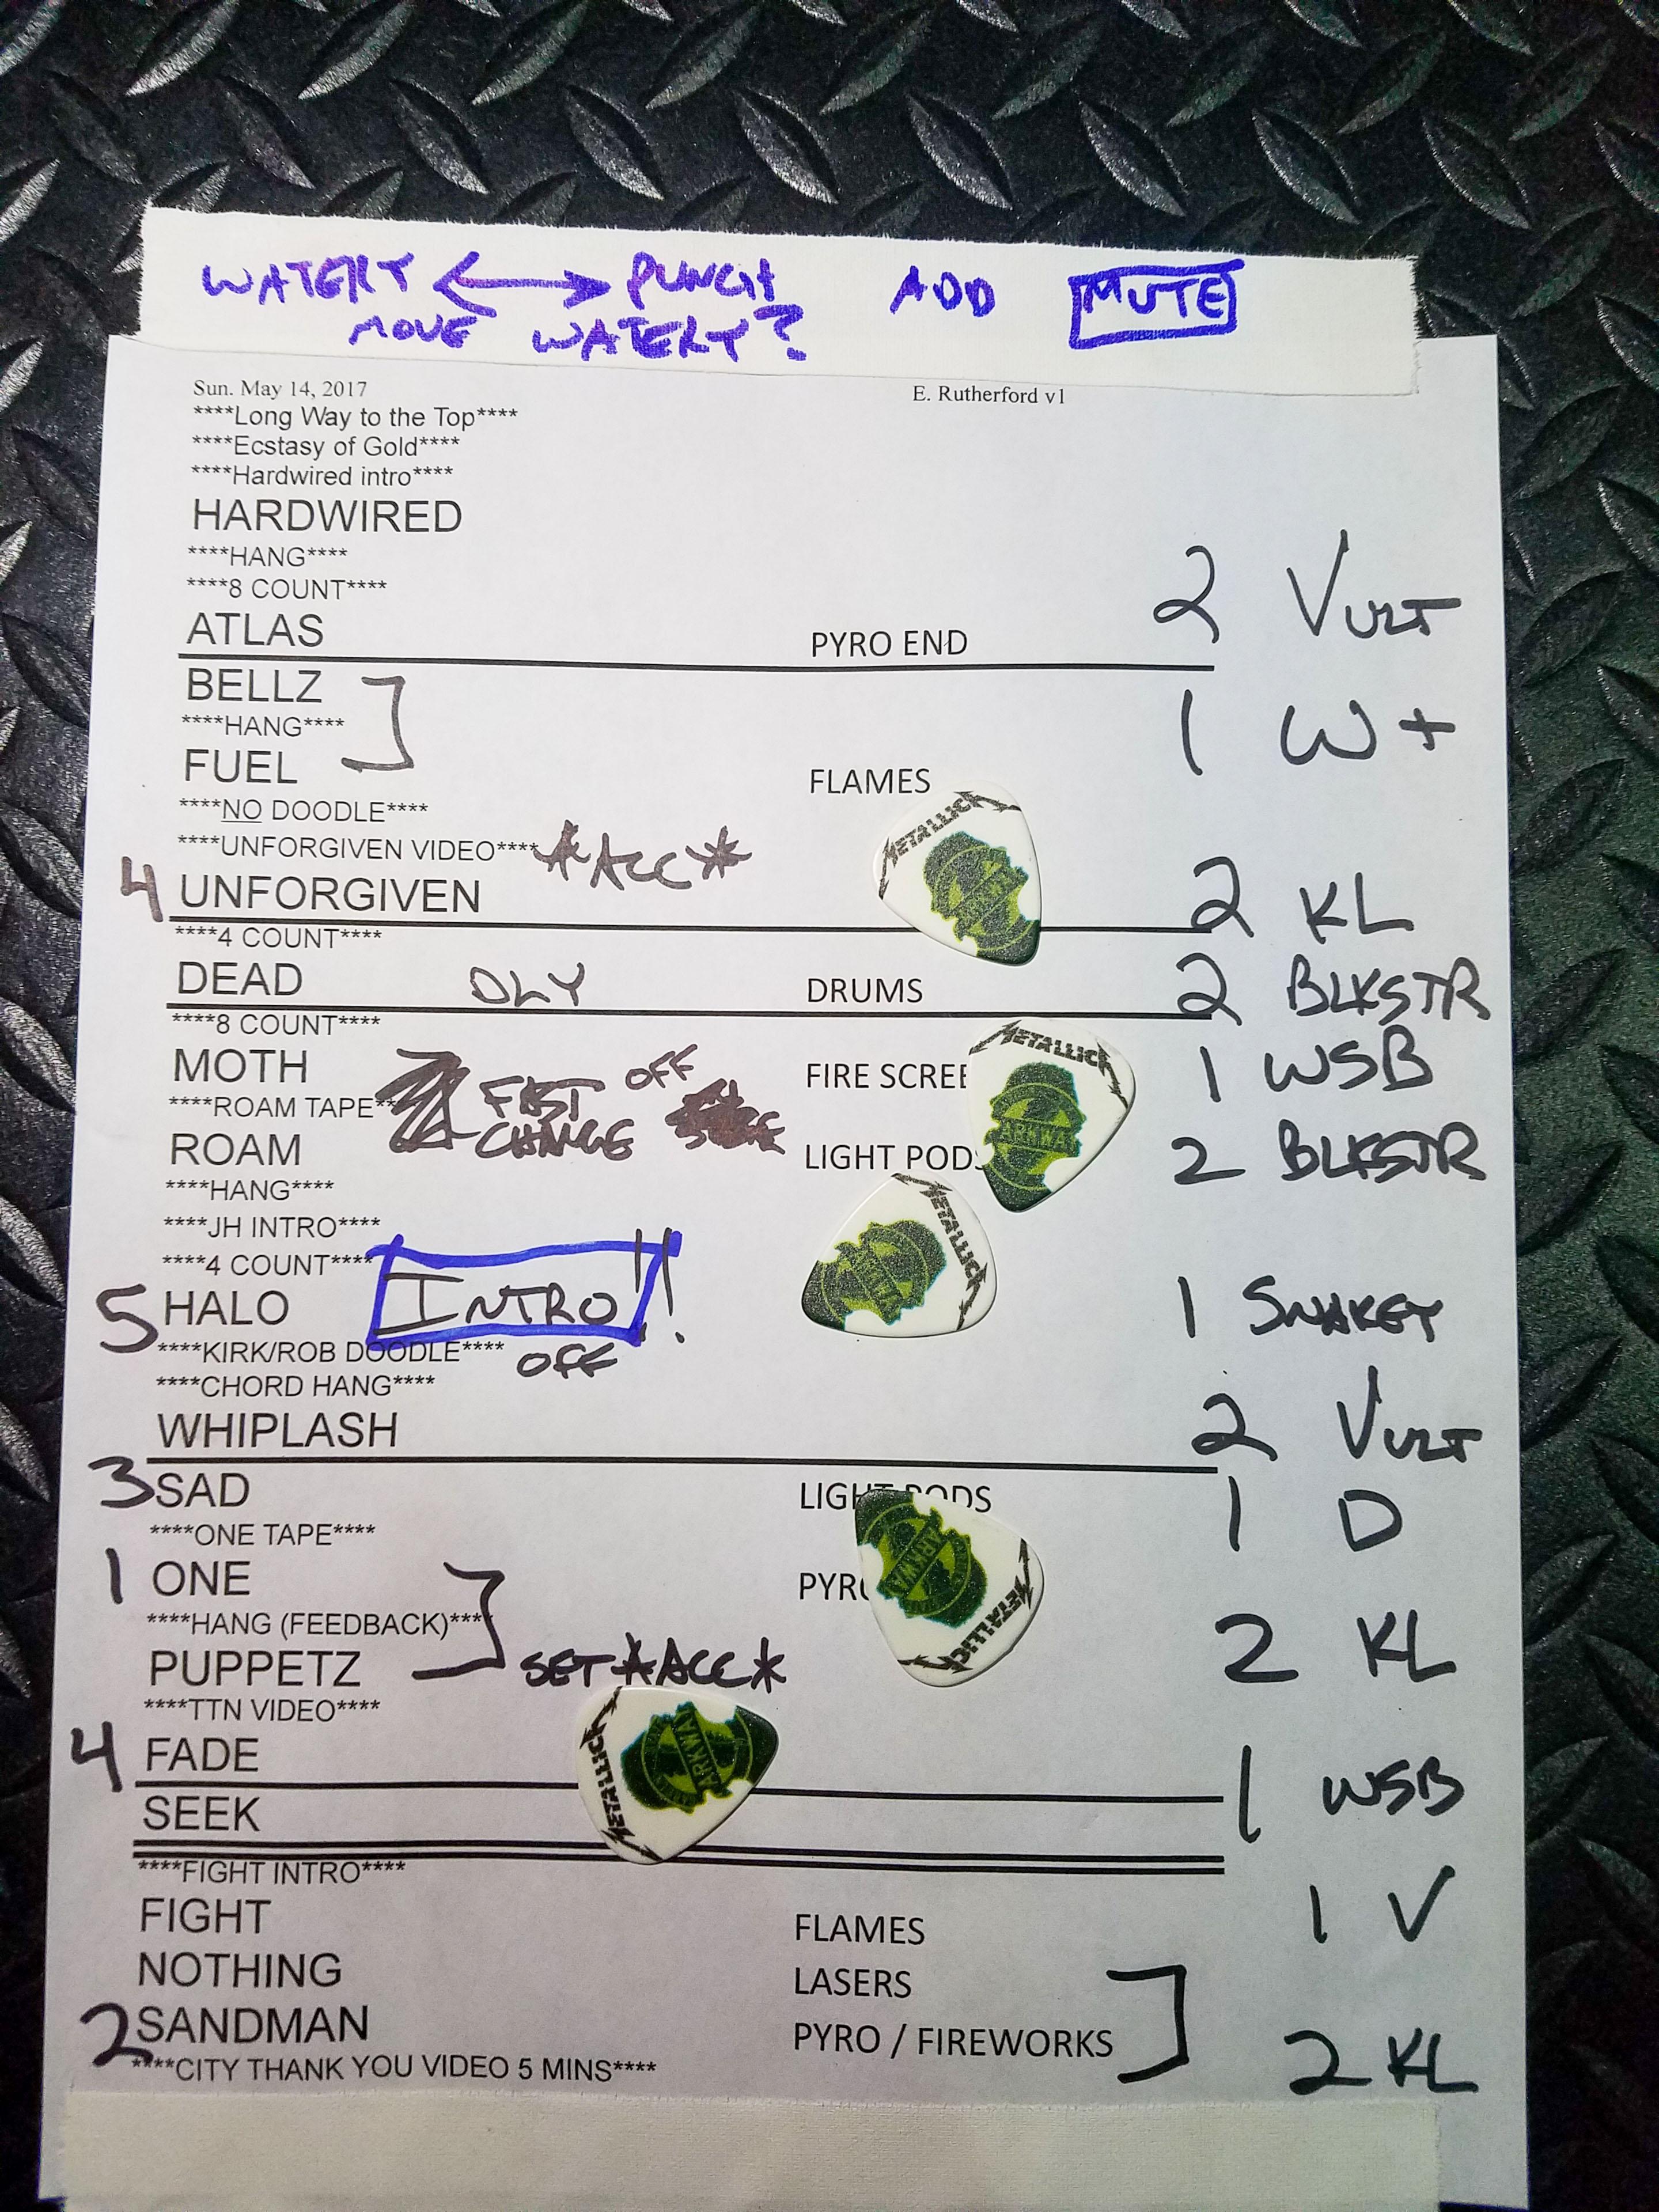 WATERY <-> PUNCH ADD MUTE
MOVE WATERY?
Sun. May 14, 2017 E. Rutherford v1
****Long Way to the Top****
****Ecstasy of Gold****
****Hardwired intro****
HARDWIRED
****HANG****
****8 COUNT****
ATLAS PYRO END 2 VULT
BELLZ
****HANG**** 1 W+
FUEL FLAMES
****NO DOODLE****
****UNFORGIVEN VIDEO**** *ACC*
4 UNFORGIVEN 2 KL
****4 COUNT****
DEAD DLY DRUMS 2 BLKSTR
****8 COUNT****
MOTH FAST OFF FIRE SCREE 1 WSB
****ROAM TAPE** CHANGE
ROAM LIGHT PODS 2 BLKSTR
****HANG****
****JH INTRO****
****4 COUNT****
5 HALO INTRO!! 1 SNAKEY
****KIRK/ROB DOODLE**** OFF
****CHORD HANG****
WHIPLASH 2 VULT
3 SAD LIGHT PODS 1 D
****ONE TAPE****
1 ONE PYRO
****HANG (FEEDBACK)****
PUPPETZ SET *ACC* 2 KL
****TTN VIDEO****
4 FADE
SEEK 1 WSB
****FIGHT INTRO****
FIGHT FLAMES 1 V
NOTHING LASERS
2 SANDMAN PYRO / FIREWORKS 2 KL
****CITY THANK YOU VIDEO 5 MINS****
METALLICA
METALLICA
ARKWA
METALLICA
METALLICA
ARKWA
METALLICA
ARKWA